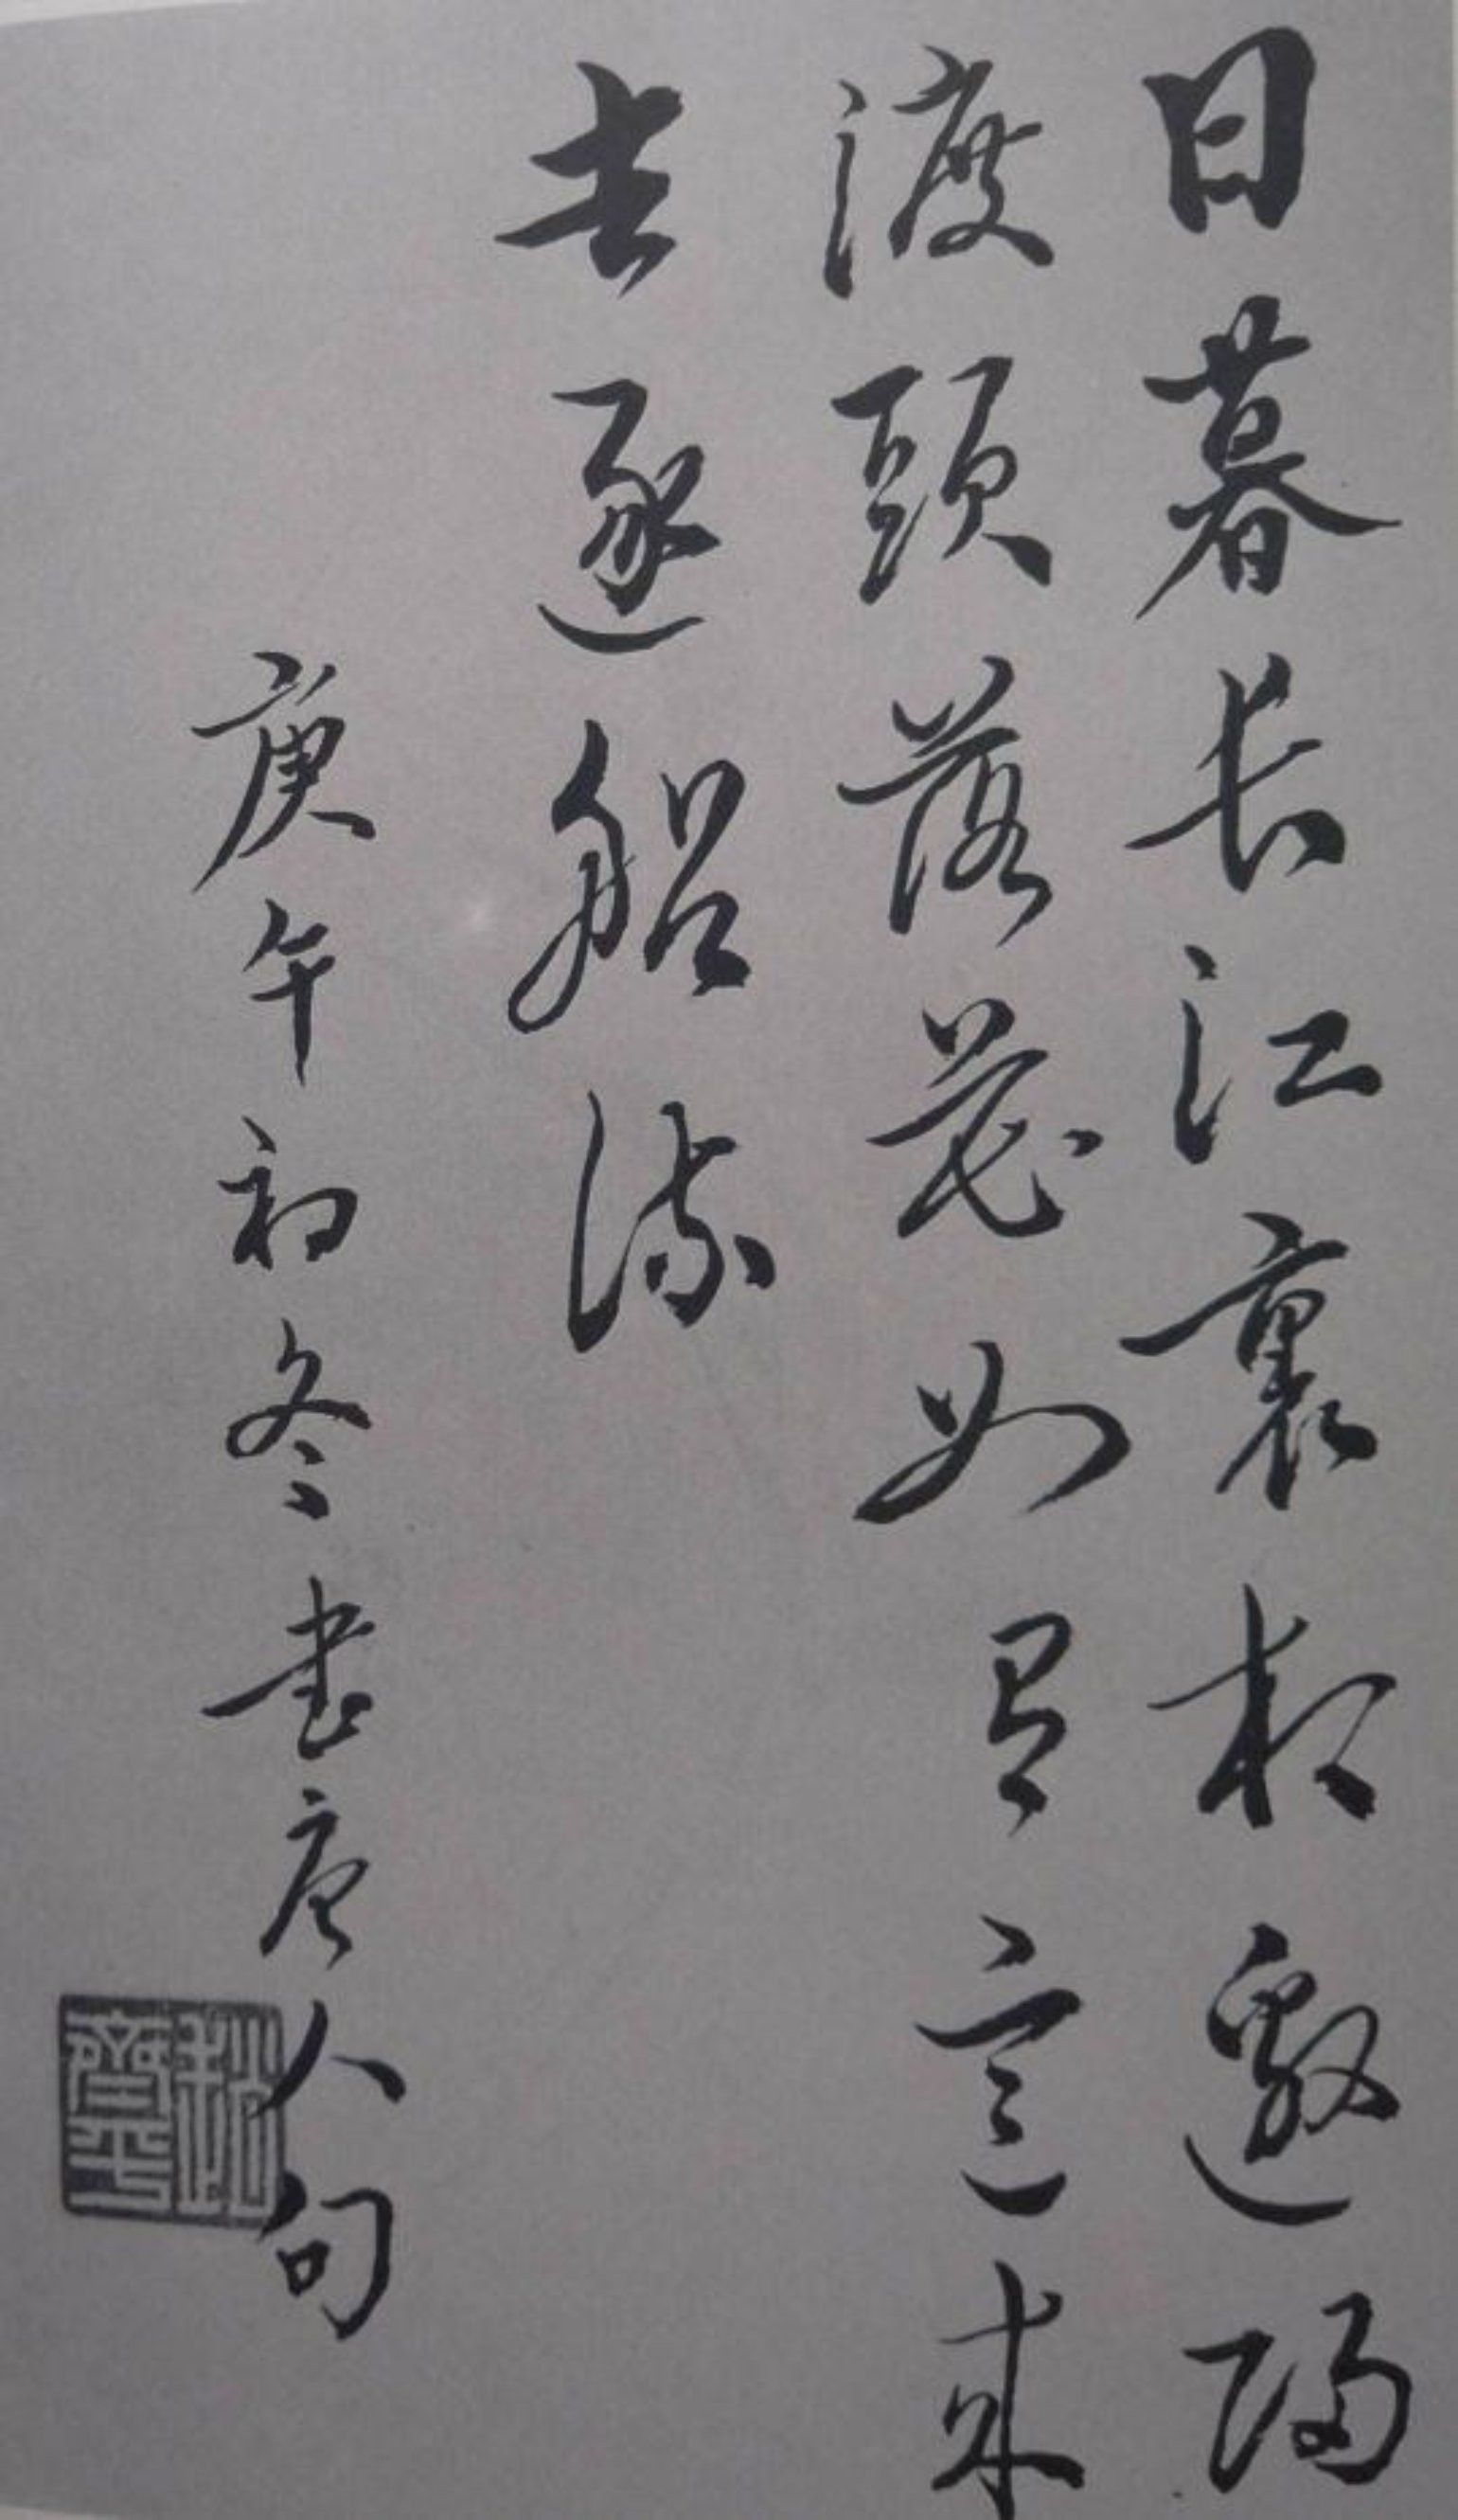 日暮长江裏相邀歸
渡頭落花如有意來
去逐船流
庚午初冬書唐人句